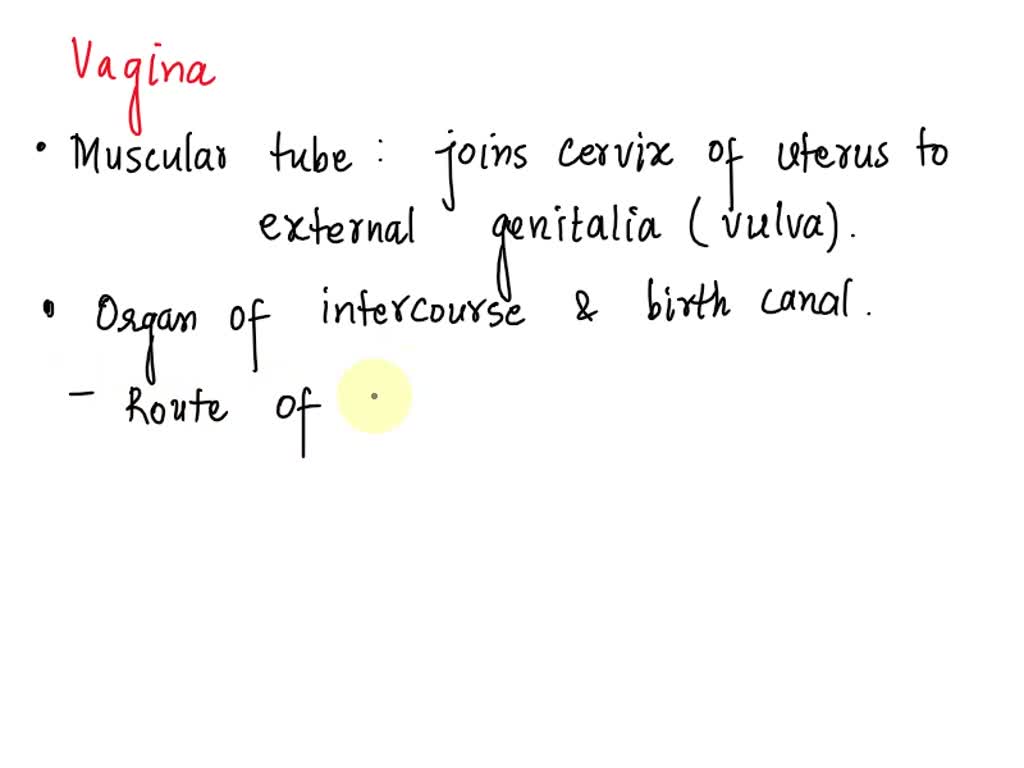 Vagina
• Muscular tube : joins cervix of uterus to
external genitalia (vulva).
• Organ of intercourse & birth canal.
- Route of